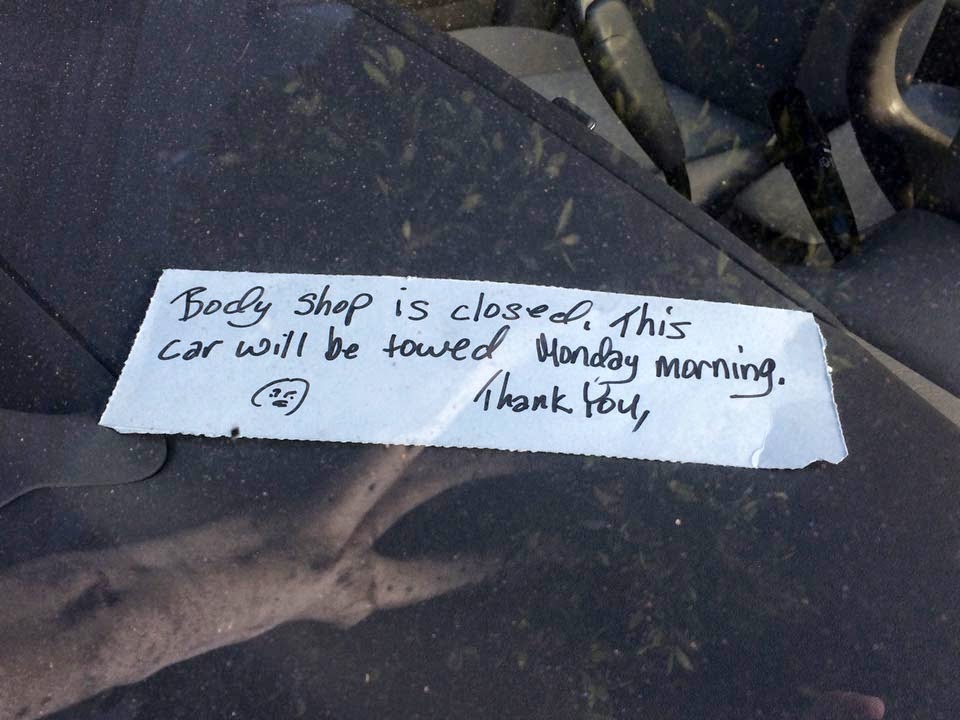 Body shop is closed. This
car will be towed Monday morning.
Thank You,